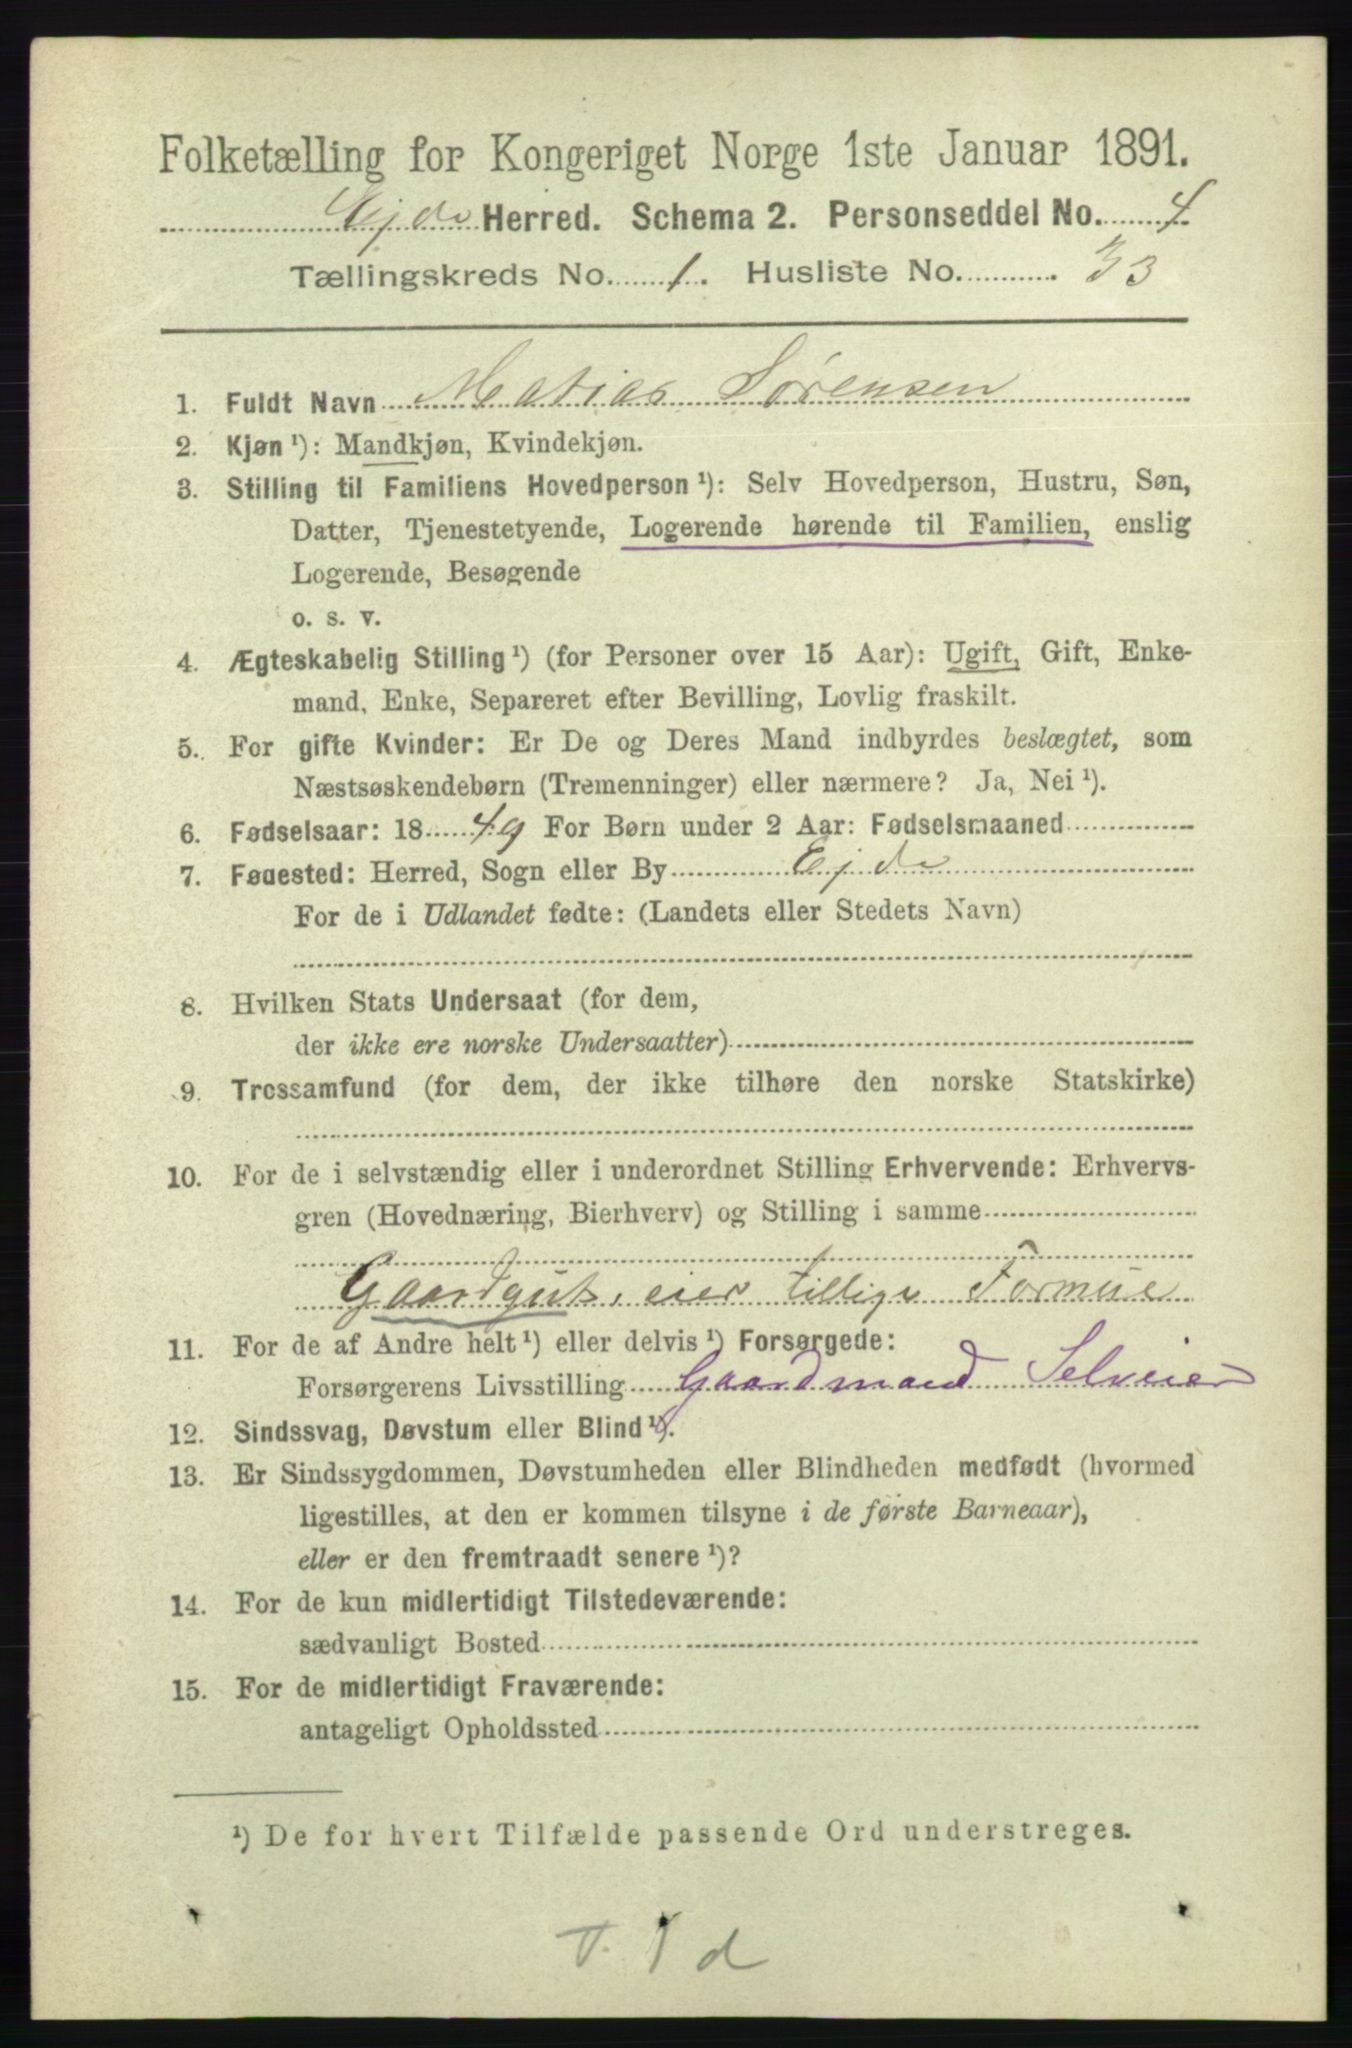 Folketælling for Kongeriget Norge 1ste Januar 1891.
Ejde Herred. Schema 2. Personseddel No. 4
Tællingskreds No. 1. Husliste No. 33
1. Fuldt Navn Matias Sørensen
2. Kjøn ¹): Mandkjøn, Kvindekjøn.
3. Stilling til Familiens Hovedperson ¹): Selv Hovedperson, Hustru, Søn,
Datter, Tjenestetyende, Logerende hørende til Familien, enslig
Logerende, Besøgende
o. s. v.
4. Ægteskabelig Stilling ¹) (for Personer over 15 Aar): Ugift, Gift, Enke-
mand, Enke, Separeret efter Bevilling, Lovlig fraskilt.
5. For gifte Kvinder: Er De og Deres Mand indbyrdes beslægtet, som
Næstsøskendebørn (Tremenninger) eller nærmere? Ja, Nei ¹).
6. Fødselsaar: 18 49 For Børn under 2 Aar: Fødselsmaaned
7. Fødested: Herred, Sogn eller By Ejde
For de i Udlandet fødte: (Landets eller Stedets Navn)
8. Hvilken Stats Undersaat (for dem,
der ikke ere norske Undersaatter)
9. Trossamfund (for dem, der ikke tilhøre den norske Statskirke)
10. For de i selvstændig eller i underordnet Stilling Erhvervende: Erhvervs-
gren (Hovednæring, Bierhverv) og Stilling i samme
Gaardgut, eier tillige Formue
11. For de af Andre helt ¹) eller delvis ¹) Forsørgede:
Forsørgerens Livsstilling Gaardmand Selveier
12. Sindssvag, Døvstum eller Blind ¹).
13. Er Sindssygdommen, Døvstumheden eller Blindheden medfødt (hvormed
ligestilles, at den er kommen tilsyne i de første Barneaar),
eller er den fremtraadt senere ¹)?
14. For de kun midlertidigt Tilstedeværende:
sædvanligt Bosted
15. For de midlertidigt Fraværende:
antageligt Opholdssted
¹) De for hvert Tilfælde passende Ord understreges.